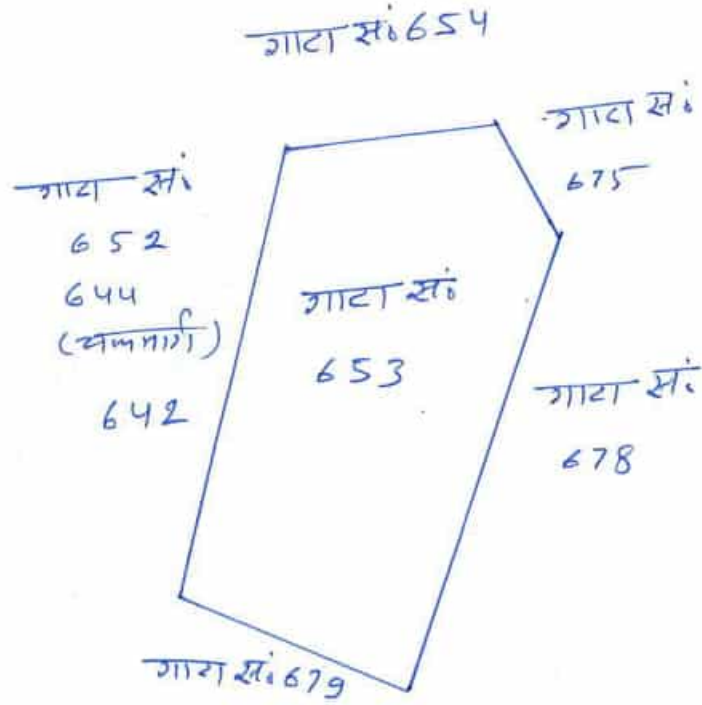 गाटा सं० 654
गाटा सं०
675
गाटा सं०
652
644
(चकमार्ग)
642
गाटा सं०
653
गाटा सं०
678
गाटा सं० 679